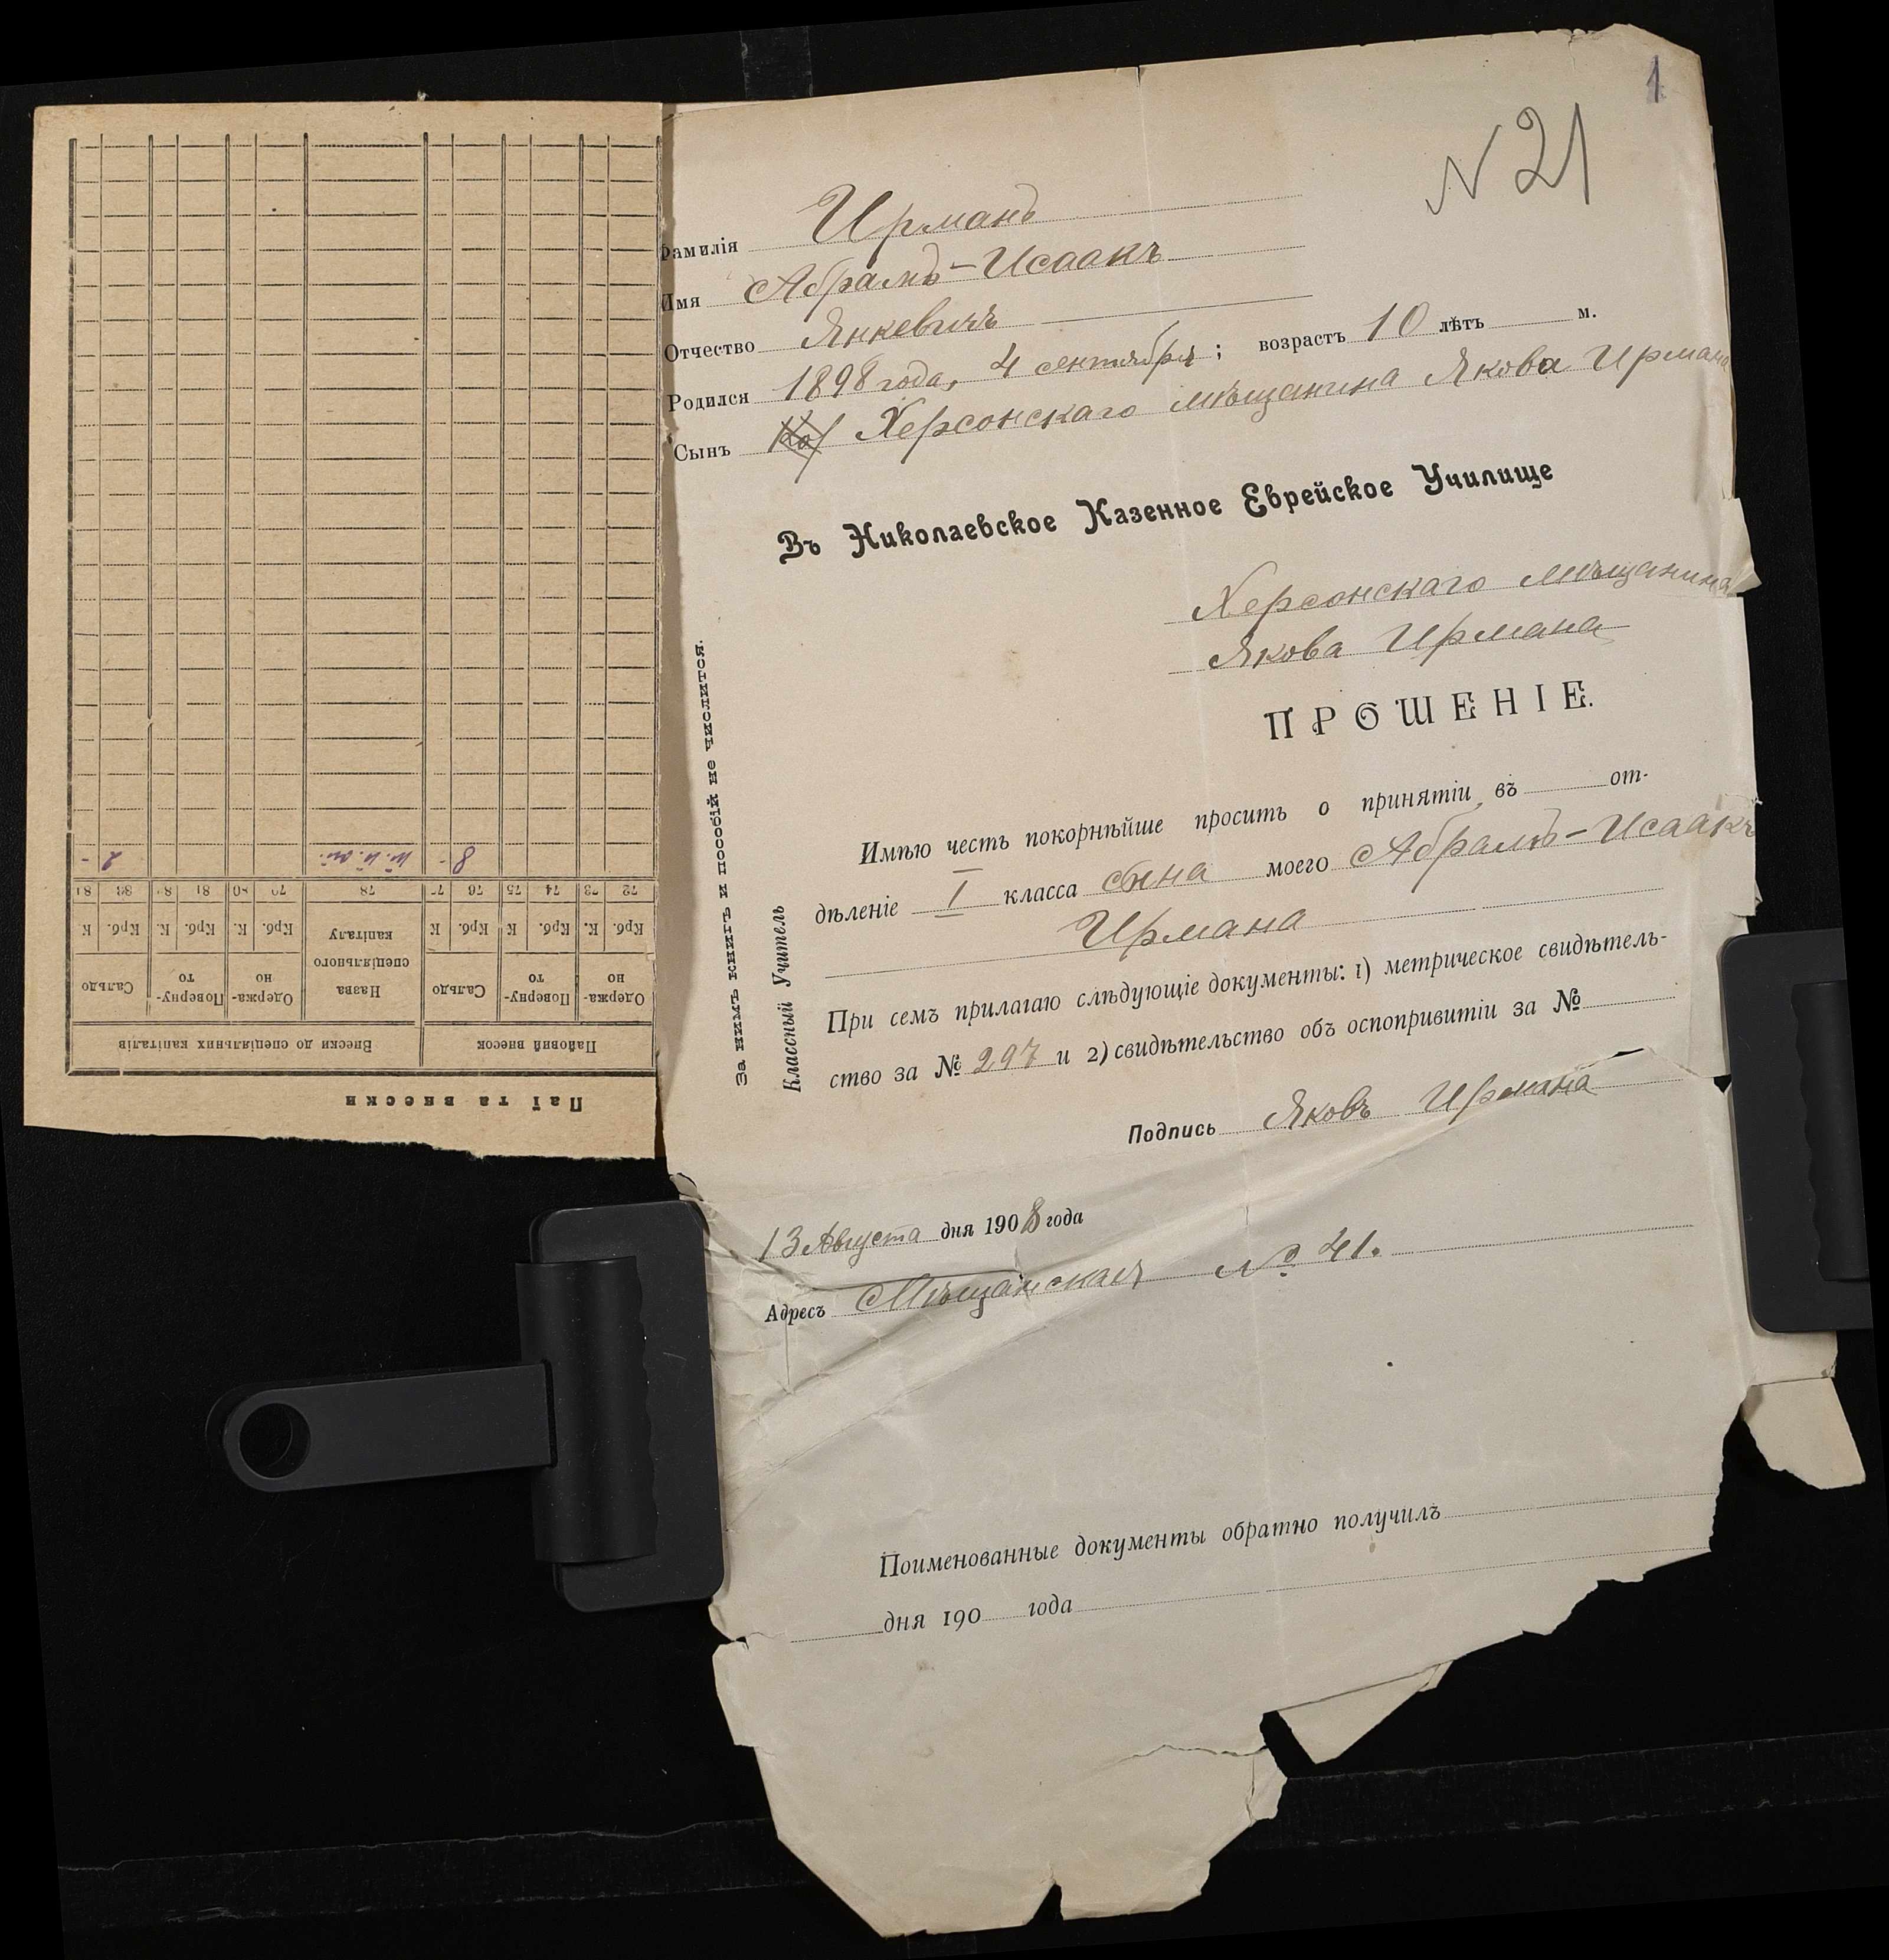 1
N 21
Фамилія Ирманъ
Имя Абрамъ-Исаакъ
Отчество Янкевичъ
Родился 1898 года, 4 сентября; возрастъ 10 лѣтъ м.
Сынъ Херсонскаго мѣщанина Якова Ирмана
Въ Николаевское Казенное Еврейское Училище
Херсонскаго мѣщанина
Якова Ирмана
ПРОШЕНІЕ.
Имѣю честь покорнѣйше просить о принятіи въ от-
дѣленіе I класса сына моего Абрамъ-Исаакъ
Ирмана
При семъ прилагаю слѣдующіе документы: 1) метрическое свидѣтель-
ство за № 297 и 2) свидѣтельство объ оспопривитіи за №
Подпись Яковъ Ирмана
13 Августа дня 1908 года
Адресъ Мѣщанская № 41.
Поименованные документы обратно получилъ
дня 190 года
За нимъ книгъ и пособій не числится.
Классный Учитель
Паї та внески
Пайовий внесок Внески до спеціяльних капіталів
Одержа- Поверну- Сальдо Назва Одержа- Поверну- Сальдо
но то спеціяльного но то
капіталу
Крб. К. Крб. К Крб. К Крб. К. Крб. К. Крб. К
72 73 74 75 76 77 78 79 80 81 82 83 84
8 - 2 -